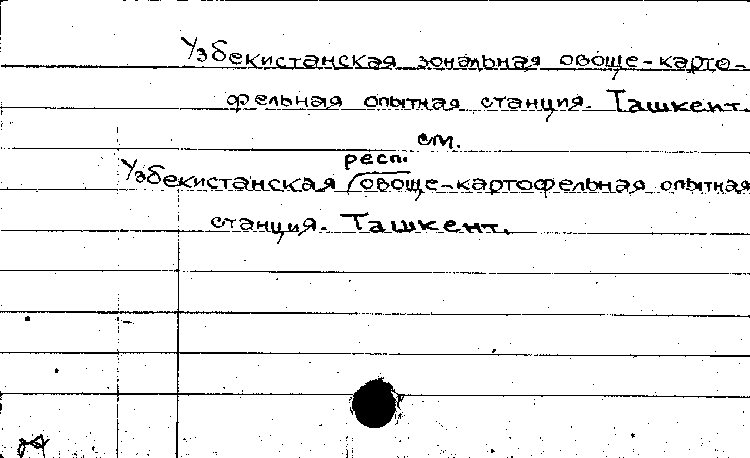 Узбекистанская зональная овоще-карто-
фельная опытная станция. Ташкент.
см.
респ.
Узбекистанская овоще-картофельная опытная
станция. Ташкент.